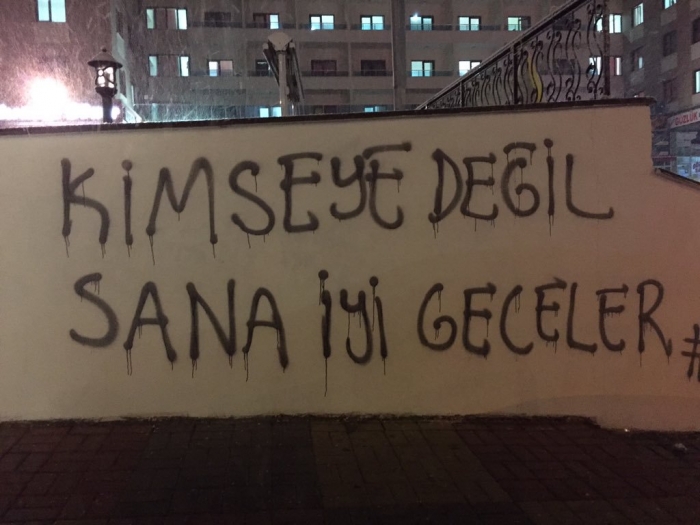 KİMSEYE DEĞİL
SANA İYİ GECELER
#